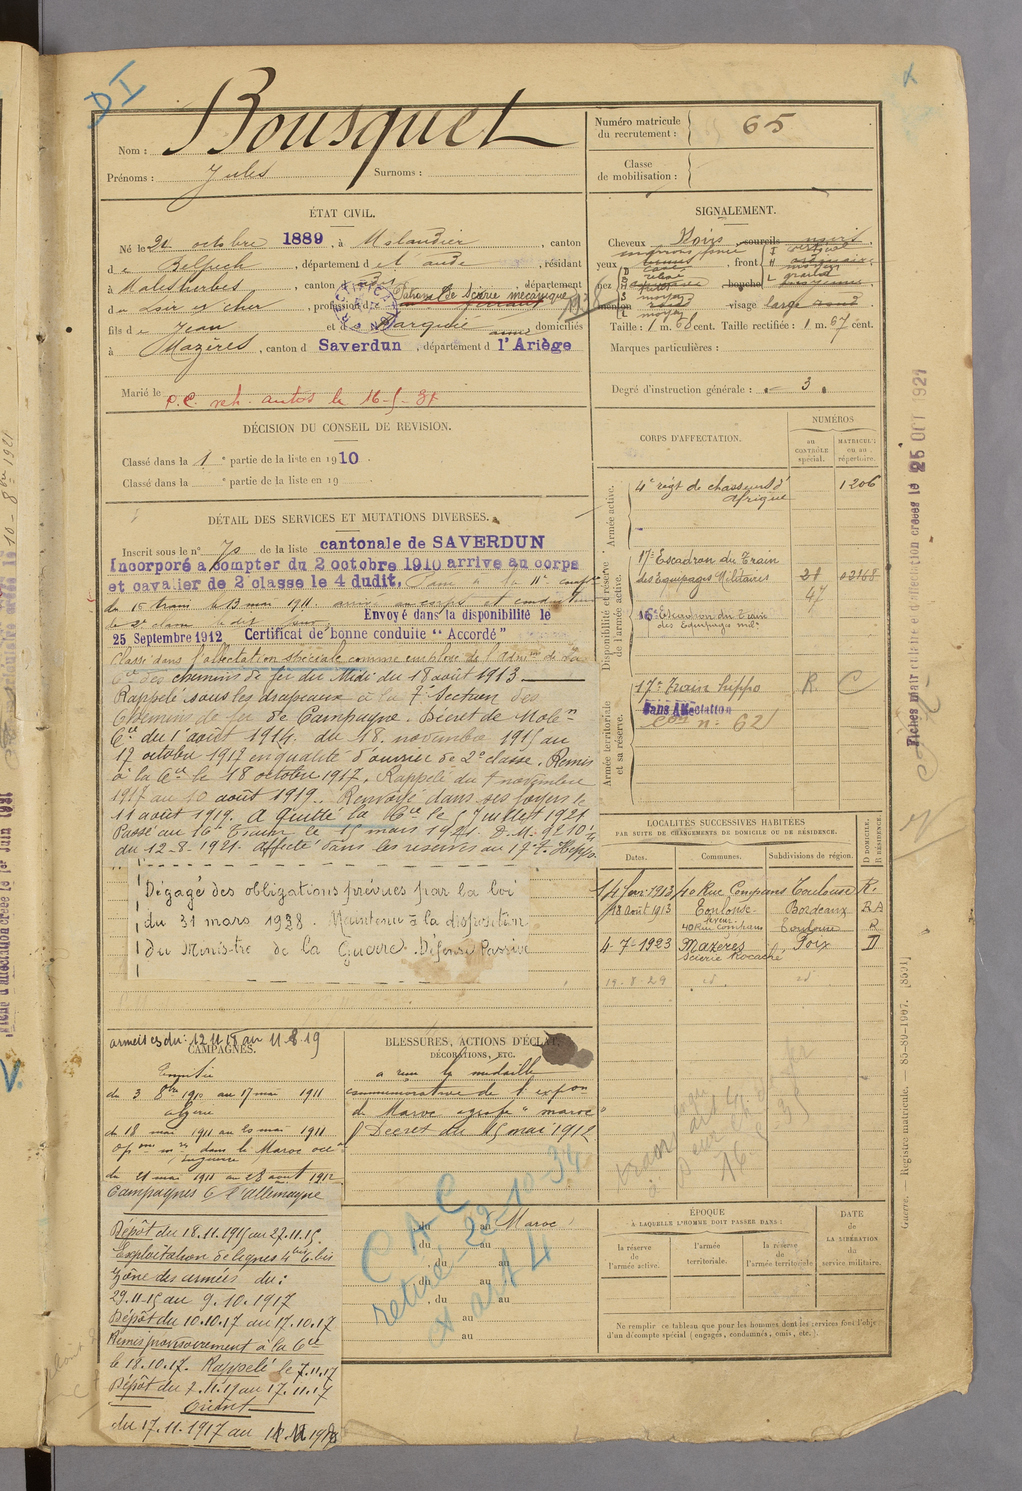 DI
Nom : Bousquet
Prénoms : Jules Surnoms :
Numéro matricule du recrutement : 65
Classe de mobilisation :
ÉTAT CIVIL.
Né le 21 octobre 1889, à Molandier, canton
de Belpech, département de l'Aude, résidant
à Malesherbes, canton, département
du Loir et Cher, profession de Patron de Scierie mécanique
fils de Jean et de domiciliés
à Mazères, canton d Saverdun, département d l'Ariège
Marié le
P.C. ret. autos le 16-5-31
DÉCISION DU CONSEIL DE REVISION.
Classé dans la 1e partie de la liste en 1910.
Classé dans la e partie de la liste en 19
DÉTAIL DES SERVICES ET MUTATIONS DIVERSES.
Inscrit sous le n° de la liste cantonale de SAVERDUN
Incorporé à compter du 2 octobre 1910 arrive au corps
et cavalier de 2e classe le 4 dudit.
du 15 train le 13 mai 1911 arrivé au corps et conducteur
de 2e classe le dit jour Envoyé dans la disponibilité le
25 Septembre 1912 Certificat de bonne conduite "Accordé"
Classé dans l'affectation spéciale comme employé de l'admon de la
Cie des chemins de fer du Midi du 18 août 1913
Rappelé sous les drapeaux à la 7e Section des
Chemins de fer de Campagne. Décret de Mobon
Gle du 1 août 1914. du 18. novembre 1915 au
17 octobre 1917 en qualité d'ouvrier de 2e classe. Remis
à la Cie le 18 octobre 1917. Rappelé du 7 novembre
1917 au 10 août 1919. Renvoyé dans ses foyers le
11 août 1919. A quitté la Cie le 5 juillet 1921
Passé au 16e Train le 15 mars 1921. D.M. 9210
du 12-8-1921. affecté dans les reserves au 17e T. Hippo.
Dégagé des obligations prévues par la loi
du 31 mars 1928. Maintenu à la disposition
du Ministre de la Guerre. Défense Passive
armées du: 12.11.18 au 11.8.19
CAMPAGNES.
Tunisie
du 3 8bre 1910 au 17 mai 1911
algérie
du 18 mai 1911 au 20 mai 1911
dans le Maroc occal
en guerre
du 21 mai 1911 au 28 août 1912
Campagnes C l'allemagne
Dépôt du 18.11.1915 au 27.11.15.
Exploitation de lignes
Zône des armées du:
29.11.15 au 9.10.1917
Dépôt du 10.10.17 au 17.10.17
Remis provisoirement à la Cie
le 18.10.17. Rappelé le 7.11.17
Dépôt du 7.11.17 au 17.11.17
Orient
du 17.11.1917 au 11.11.1918
BLESSURES, ACTIONS D'ÉCLAT,
DÉCORATIONS, ETC.
a reçu la médaille
commemorative de l'expon
du Maroc agrafe "maroc"
Décret du 15 mai 1912
, du au Maroc
, du au
, du au
, du au
, du au
au
au
C A C
retiré 22-10-34
SIGNALEMENT.
Cheveux Noirs, sourcils noirs,
yeux, front
nez, bouche
menton, visage large rond
Taille : 1 m. 68 cent. Taille rectifiée : 1 m. 67 cent.
Marques particulières :
Degré d'instruction générale : 3
CORPS D'AFFECTATION.
NUMÉROS
au CONTRÔLE spécial.
MATRICULE ou au répertoire.
Armée active.
4e régt de chasseurs d'Afrique 1206
Disponibilité et réserve de l'armée active.
17e Escadron du Train
des Equipages Militaires 28 02168
47
16e Escadron du Train
des Equipages milres
Armée territoriale et sa réserve.
17e Train hippo R. C
Sans Affectation
Con n° 621
LOCALITÉS SUCCESSIVES HABITÉES
PAR SUITE DE CHANGEMENTS DE DOMICILE OU DE RÉSIDENCE.
Dates. Communes. Subdivisions de région. D DOMICILE. R RÉSIDENCE.
14 1913 40 Rue Compans Toulouse R.
18 Août 1913 Toulouse. Bordeaux R A
40 Rue Compans Toulouse R
4-7-1923 Mazères Foix D
Scierie Rocaché
19-8-29 id. id
ÉPOQUE
À LAQUELLE L'HOMME DOIT PASSER DANS :
la réserve de l'armée active.
l'armée territoriale.
la réserve de l'armée territoriale
DATE de LA LIBÉRATION du service militaire.
Ne remplir ce tableau que pour les hommes dont les services font l'objet
d'un décompte spécial (engagés, condamnés, omis, etc.).
Fiches matriculaire et d'affectation créées le 25 OCT 1921
Guerre. — Registre matricule. — 85-89-1907. [8591]